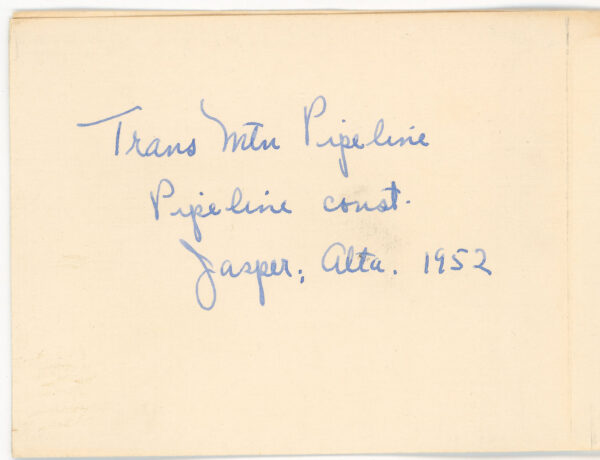 Trans Mtn Pipeline
Pipeline const.
Jasper, Alta. 1952